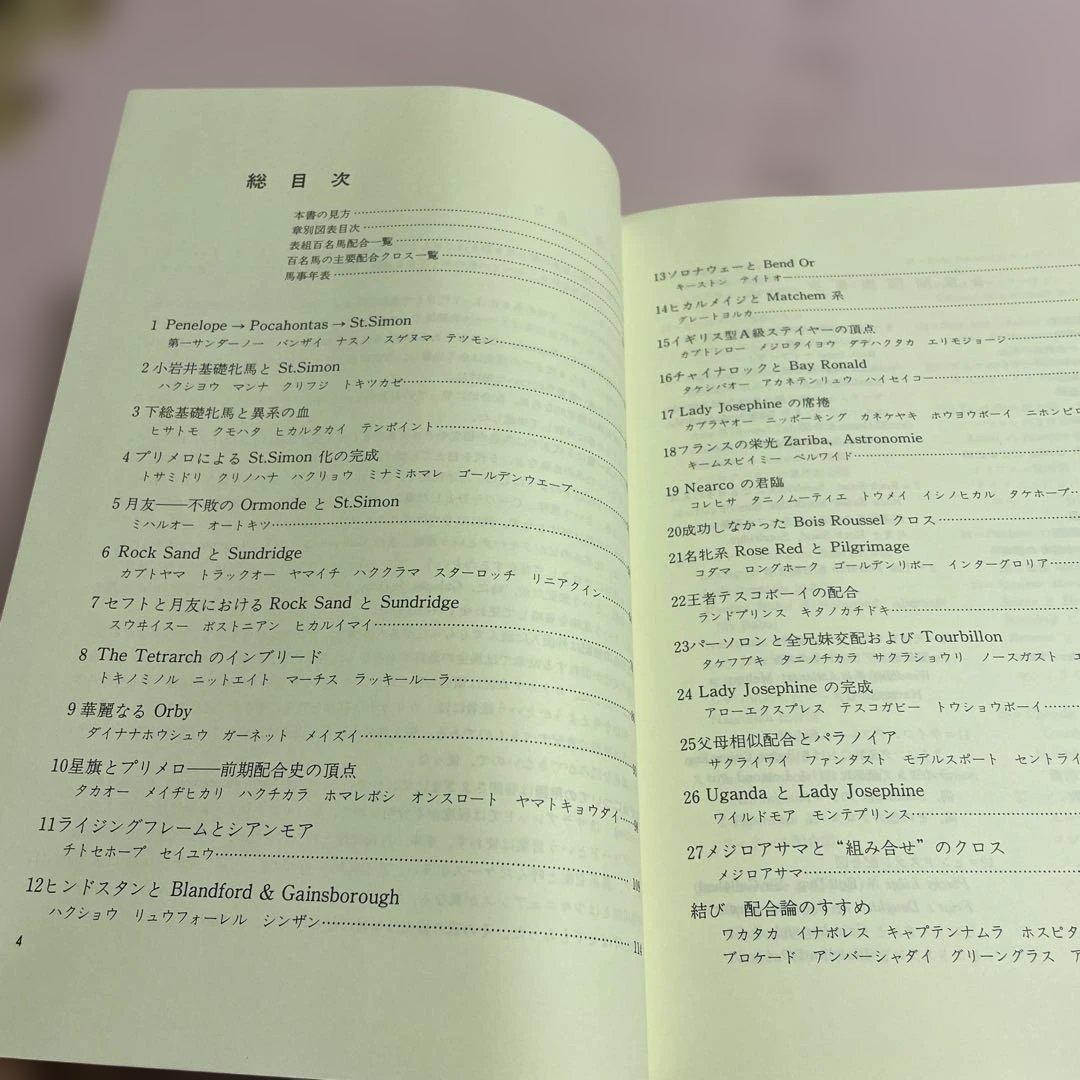 総目次
本書の見方
章別図表目次
表組百名馬配合一覧
百名馬の主要配合クロス一覧
馬事年表
1 Penelope → Pocahontas → St.Simon
第一サンダーノー バンザイ ナスノ スゲヌマ テツモン
2 小岩井基礎牝馬と St.Simon
ハクシヨウ マンナ クリフジ トキツカゼ
3 下総基礎牝馬と異系の血
ヒサトモ クモハタ ヒカルタカイ テンポイント
4 プリメロによる St.Simon 化の完成
トサミドリ クリノハナ ハクリョウ ミナミホマレ ゴールデンウエーブ
5 月友——不敗の Ormonde と St.Simon
ミハルオー オートキツ
6 Rock Sand と Sundridge
カブトヤマ トラックオー ヤマイチ ハククラマ スターロッチ リニアクイン
7 セフトと月友における Rock Sand と Sundridge
スウヰイスー ボストニアン ヒカルイマイ
8 The Tetrarch のインブリード
トキノミノル ニットエイト マーチス ラッキールーラ
9 華麗なる Orby
ダイナナホウシュウ ガーネット メイズイ
10 星旗とプリメロ——前期配合史の頂点
タカオー メイヂヒカリ ハクチカラ ホマレボシ オンスロート ヤマトキョウダイ
11 ライジングフレームとシアンモア
チトセホープ セイユウ 108
12 ヒンドスタンと Blandford & Gainsborough
ハクショウ リュウフォーレル シンザン 114
4
13 ソロナウェーと Bend Or
キーストン テイトオー
14 ヒカルメイジと Matchem 系
グレートヨルカ
15 イギリス型A級ステイヤーの頂点
カブトシロー メジロタイヨウ ダテハクタカ エリモジョージ
16 チャイナロックと Bay Ronald
タケシバオー アカネテンリュウ ハイセイコー
17 Lady Josephine の席捲
カブラヤオー ニッポーキング カネケヤキ ホウヨウボーイ ニホンピロ
18 フランスの栄光 Zariba, Astronomie
キームスビイミー ベルワイド
19 Nearco の君臨
コレヒサ タニノムーティエ トウメイ イシノヒカル タケホープ
20 成功しなかった Bois Roussel クロス
21 名牝系 Rose Red と Pilgrimage
コダマ ロングホーク ゴールデンリボー インターグロリア
22 王者テスコボーイの配合
ランドプリンス キタノカチドキ
23 パーソロンと全兄妹交配および Tourbillon
タケフブキ タニノチカラ サクラショウリ ノースガスト エ
24 Lady Josephine の完成
アローエクスプレス テスコガビー トウショウボーイ
25 父母相似配合とパラノイア
サクライワイ ファンタスト モデルスポート セントライ
26 Uganda と Lady Josephine
ワイルドモア モンテプリンス
27 メジロアサマと“組み合せ”のクロス
メジロアサマ
結び 配合論のすすめ
ワカタカ イナボレス キャプテンナムラ ホスピタ
ブロケード アンバーシャダイ グリーングラス ア